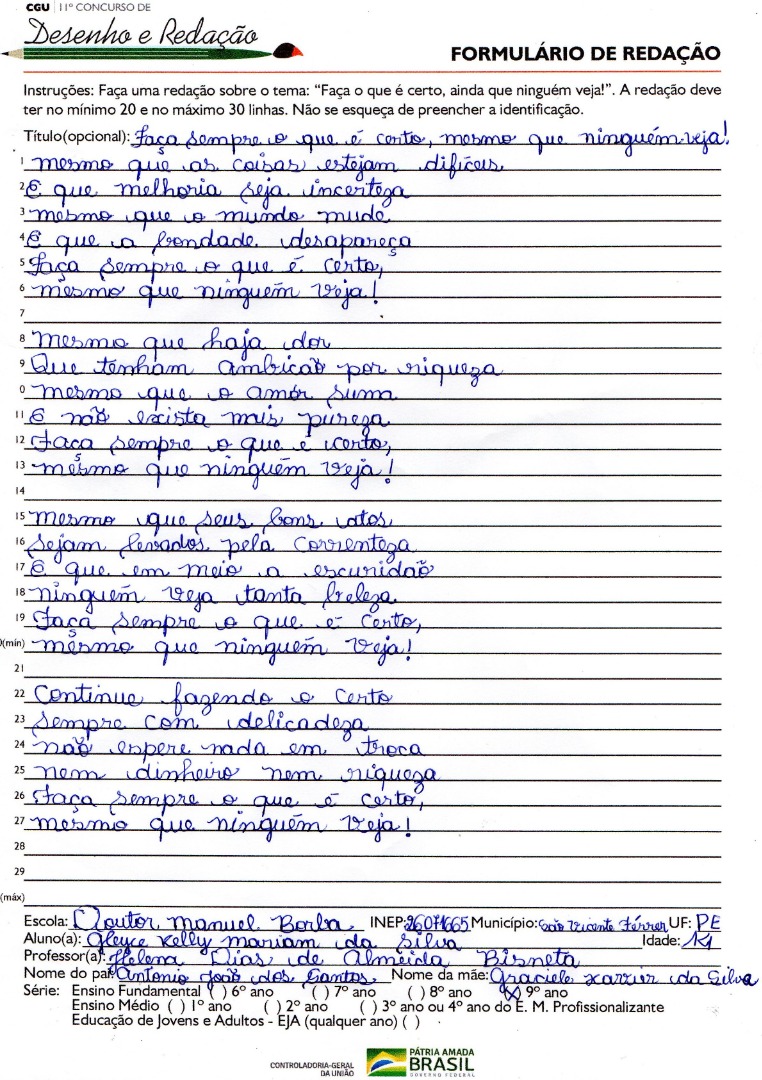 CGU | 11º CONCURSO DE
Desenho e Redação
FORMULÁRIO DE REDAÇÃO
Instruções: Faça uma redação sobre o tema: "Faça o que é certo, ainda que ninguém veja!". A redação deve
ter no mínimo 20 e no máximo 30 linhas. Não se esqueça de preencher a identificação.
Título(opcional): Faça sempre o que é certo, mesmo que ninguém veja!
1 mesmo que as coisas estejam difíceis
2 E que melhoria seja incerteza
3 mesmo que o mundo mude
4 E que a bondade desapareça
5 Faça sempre o que é certo,
6 mesmo que ninguém veja!
7
8 mesmo que haja dor
9 Que tenham ambição por riqueza
0 mesmo que o amor suma
11 E não exista mais pureza
12 Faça sempre o que é certo,
13 mesmo que ninguém veja!
14
15 mesmo que seus bons atos
16 sejam levados pela correnteza
17 E que em meio a escuridão
18 ninguém veja tanta beleza
19 Faça sempre o que é certo,
(mín) mesmo que ninguém veja!
21
22 Continue fazendo o certo
23 sempre com delicadeza
24 não espere nada em troca
25 nem dinheiro nem riqueza
26 Faça sempre o que é certo,
27 mesmo que ninguém veja!
28
29
(máx)
Escola: Doutor Manuel Borba INEP: 26071665 Município: São Vicente Férrer UF: PE
Aluno(a): Gleyce Kelly mariam da Silva Idade: 14
Professor(a): Helena Dias de Almeida Bisneta
Nome do pai: Antonio João dos Santos Nome da mãe: Graciele xavier da Silva
Série: Ensino Fundamental ( ) 6º ano ( ) 7º ano ( ) 8º ano (X) 9º ano
Ensino Médio ( ) 1º ano ( ) 2º ano ( ) 3º ano ou 4º ano do E. M. Profissionalizante
Educação de Jovens e Adultos - EJA (qualquer ano) ( )
CONTROLADORIA-GERAL
DA UNIÃO
PÁTRIA AMADA
BRASIL
GOVERNO FEDERAL